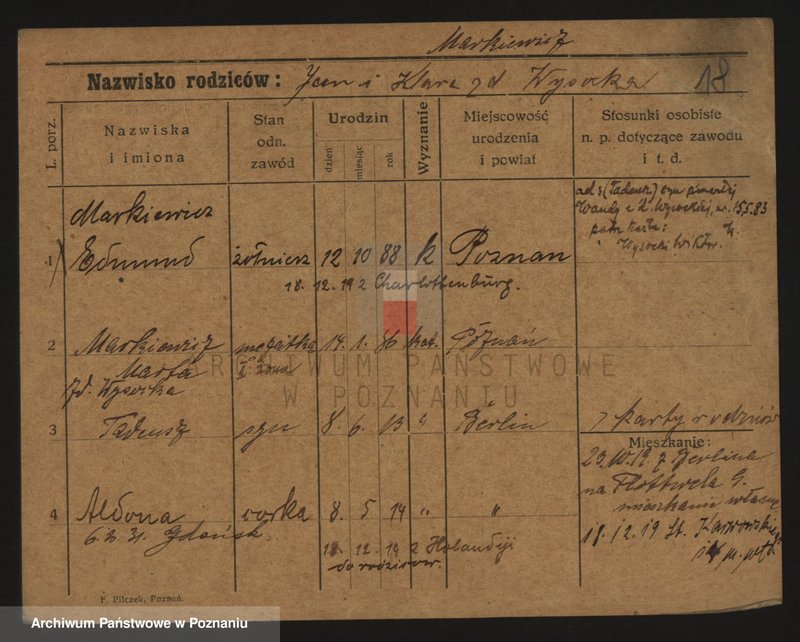 Markiewicz
Nazwisko rodziców: Jan i Klara zd Wysocka 18
L. porz.
Nazwiska i imiona
Stan odn. zawód
Urodzin
dzień
miesiąc
rok
Wyznanie
Miejscowość urodzenia i powiat
Stosunki osobiste n. p. dotyczące zawodu i t. d.
ad 3 (Tadeusz) syn
Wandy z d. Wysockiej, ur. 15.5.83
patrz karta:
Wysocki Wiktor.
Markiewicz
1 Edmund żołnierz 12 10 88 k Poznan
18. 12. 19 z Charlottenburg.
2 Markiewicz mężatka 14. 1. 86 kat. Poznań
Marta II żona
zd. Wysocka
ARCHIWUM PAŃSTWOWE
W POZNANIU
3 Tadeusz syn 8. 6. 13 " Berlin
z karty rodziców
Mieszkanie:
23.10.19. z Berlina
na Flottwela 9.
mieszkanie własne
4 Aldona corka 8. 5 14 " "
18.12.19 St. Karwowskiego
6. 31. Gdańsk
18. 12. 19 z Holandiji
do rodzicow.
F. Pilczek, Poznań.
Archiwum Państwowe w Poznaniu